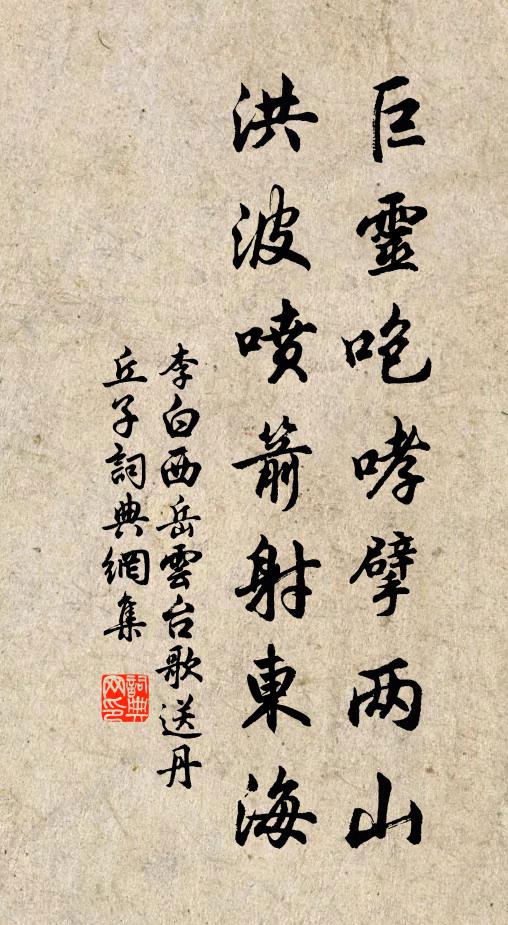 巨靈咆哮擘两山
洪波噴箭射東海
李白西岳雲台歌送丹
丘子詞典網集
詞典网印